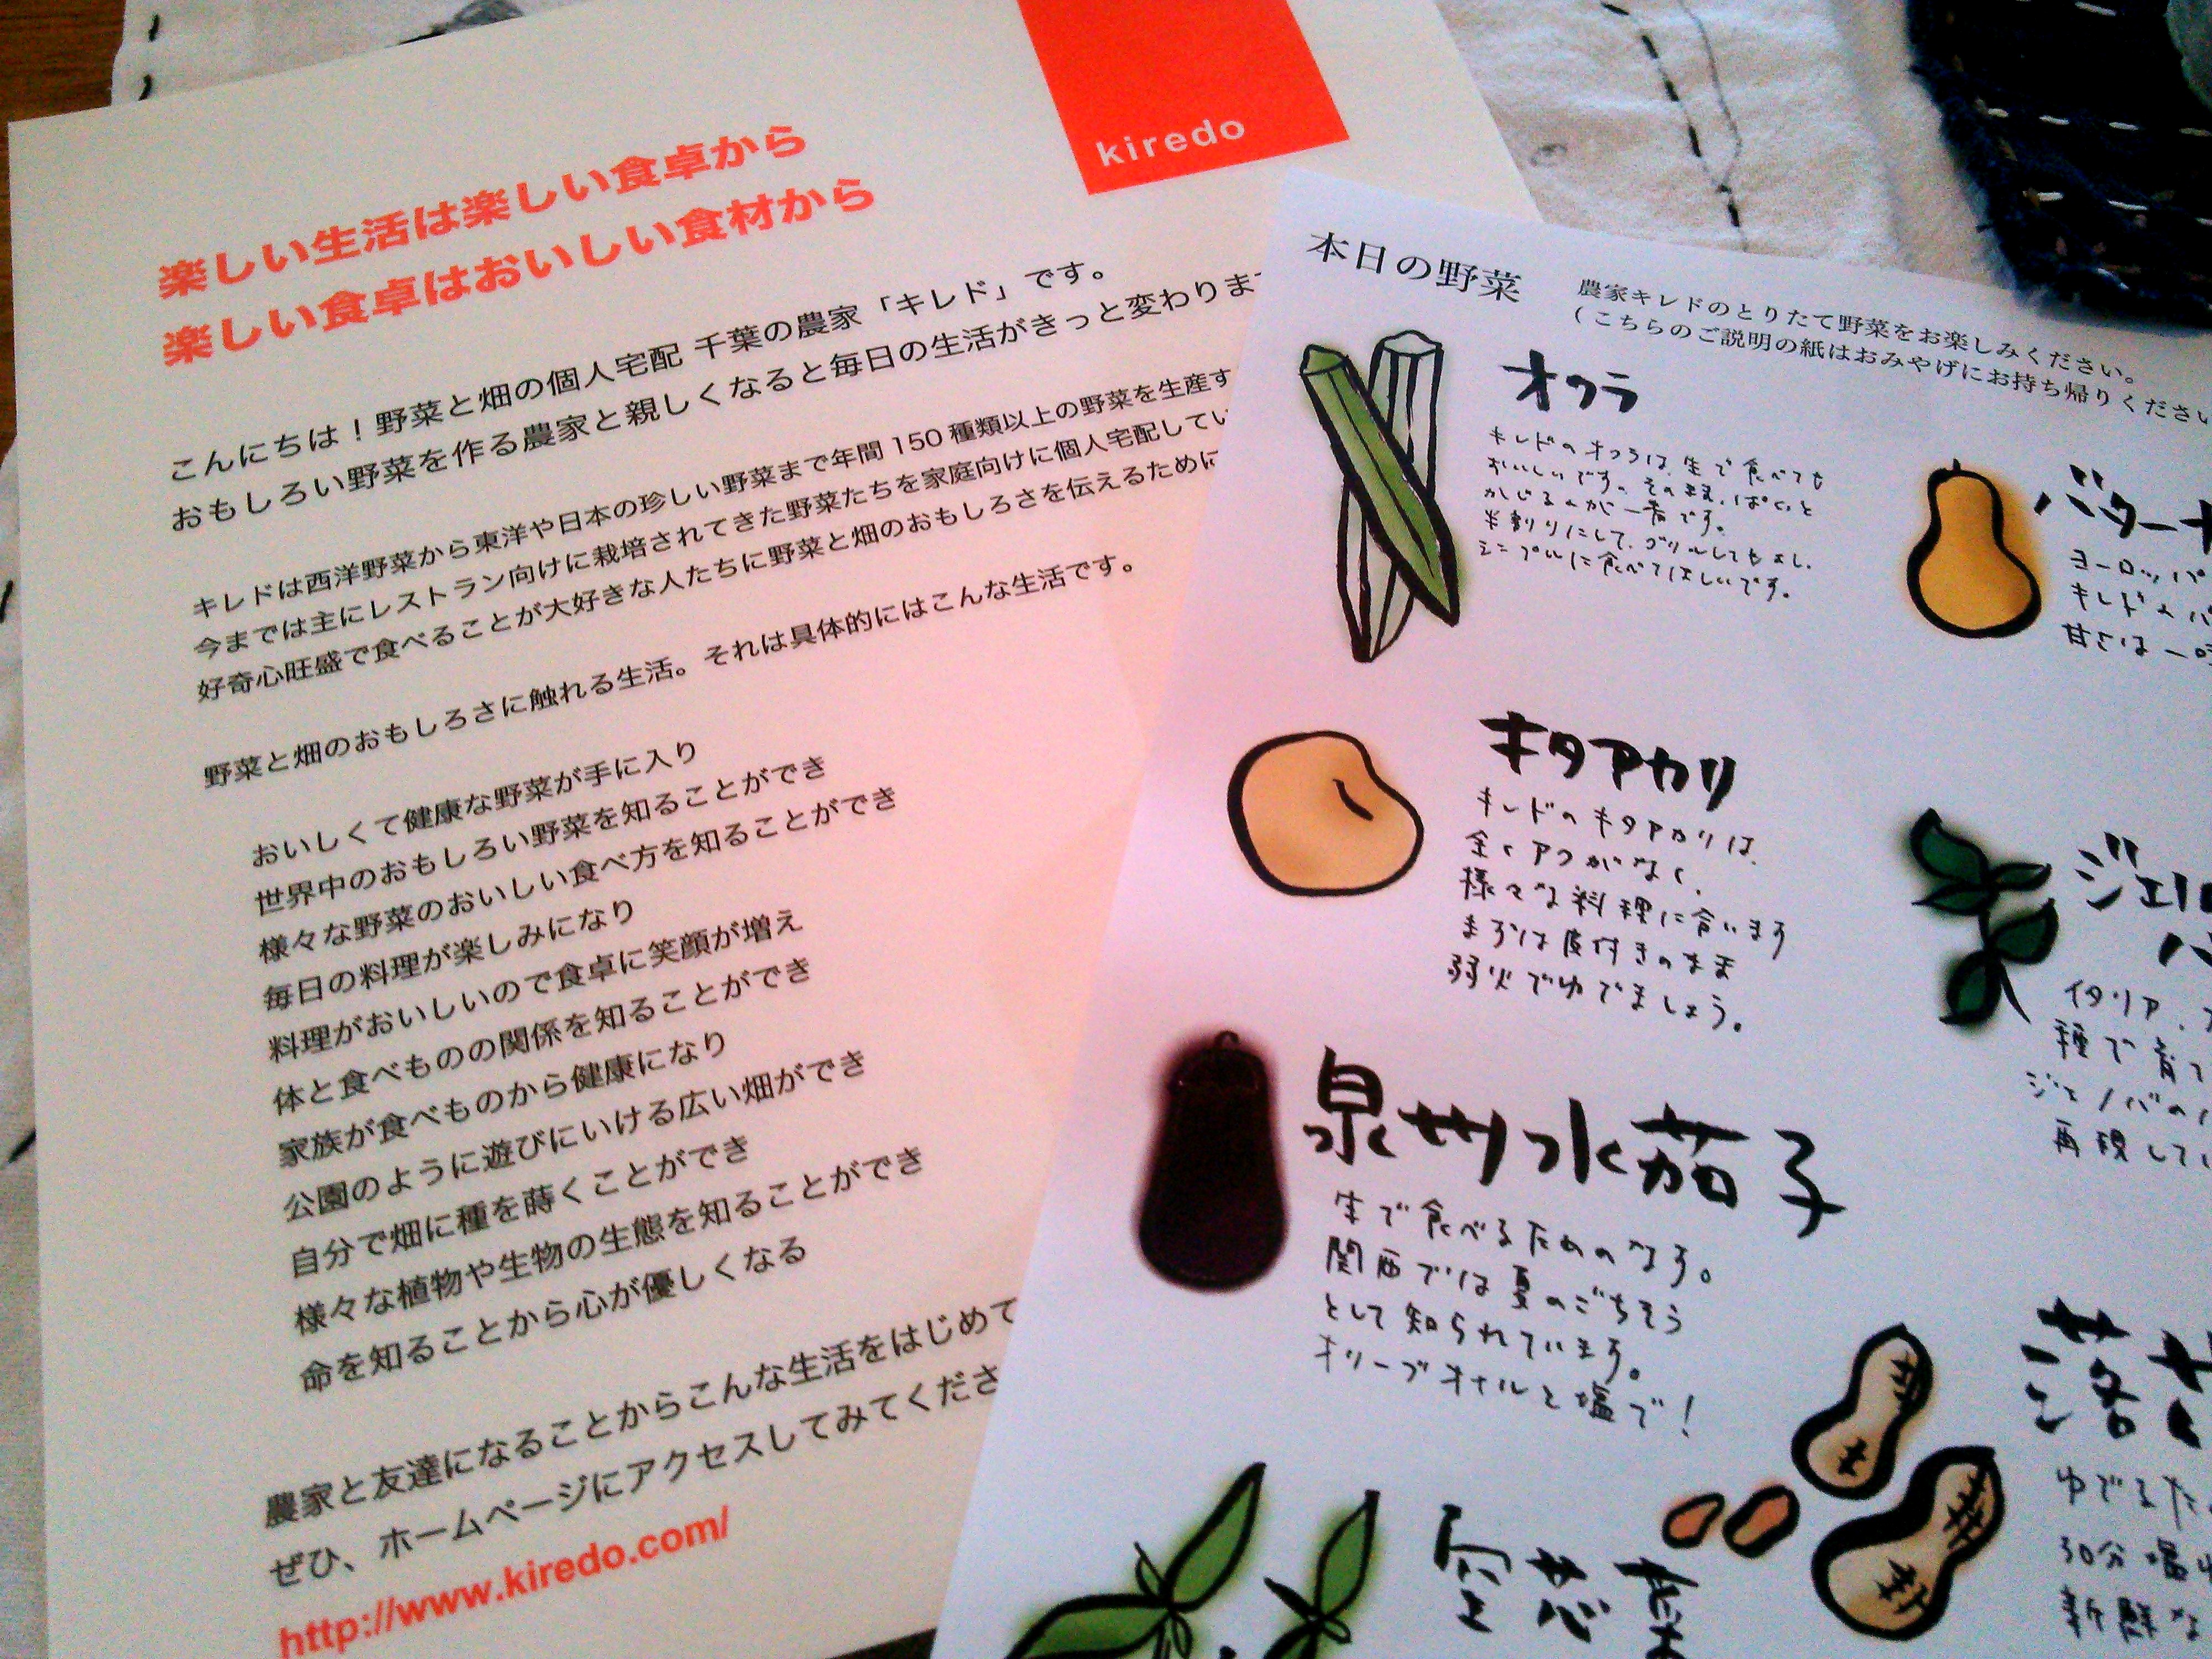 kiredo
楽しい生活は楽しい食卓から
楽しい食卓はおいしい食材から
こんにちは！野菜と畑の個人宅配 千葉の農家「キレド」です。
おもしろい野菜を作る農家と親しくなると毎日の生活がきっと変わりま
キレドは西洋野菜から東洋や日本の珍しい野菜まで年間 150 種類以上の野菜を生産す
今までは主にレストラン向けに栽培されてきた野菜たちを家庭向けに個人宅配してい
好奇心旺盛で食べることが大好きな人たちに野菜と畑のおもしろさを伝えるために
野菜と畑のおもしろさに触れる生活。それは具体的にはこんな生活です。
おいしくて健康な野菜が手に入り
世界中のおもしろい野菜を知ることができ
様々な野菜のおいしい食べ方を知ることができ
毎日の料理が楽しみになり
料理がおいしいので食卓に笑顔が増え
体と食べものの関係を知ることができ
家族が食べものから健康になり
公園のように遊びにいける広い畑ができ
自分で畑に種を蒔くことができ
様々な植物や生物の生態を知ることができ
命を知ることから心が優しくなる
農家と友達になることからこんな生活をはじめて
ぜひ、ホームページにアクセスしてみてくださ
http://www.kiredo.com/
本日の野菜
農家キレドのとりたて野菜をお楽しみください。
(こちらのご説明の紙はおみやげにお持ち帰りください
オクラ
キレドのオクラは、生で食べても
おいしいです。そのまま、ぱくっと
かじるのが一番です。
半割りにして、グリルしてもよし、
シンプルに食べてほしいです。
キタアカリ
キレドのキタアカリは、
全くアクがなく、
様々な料理に合います
まずは皮付きのまま
弱火でゆでましょう。
泉州水茄子
生で食べるためのなす。
関西では夏のごちそう
として知られています。
オリーブオイルと塩で！
空芯菜
バターナ
ヨーロッパ
キレドのバ
甘さは一味
ジェノ
バ
イタリア、
種で育て
ジェノバの
再現してい
落花
ゆでるた
30分塩ゆ
新鮮な